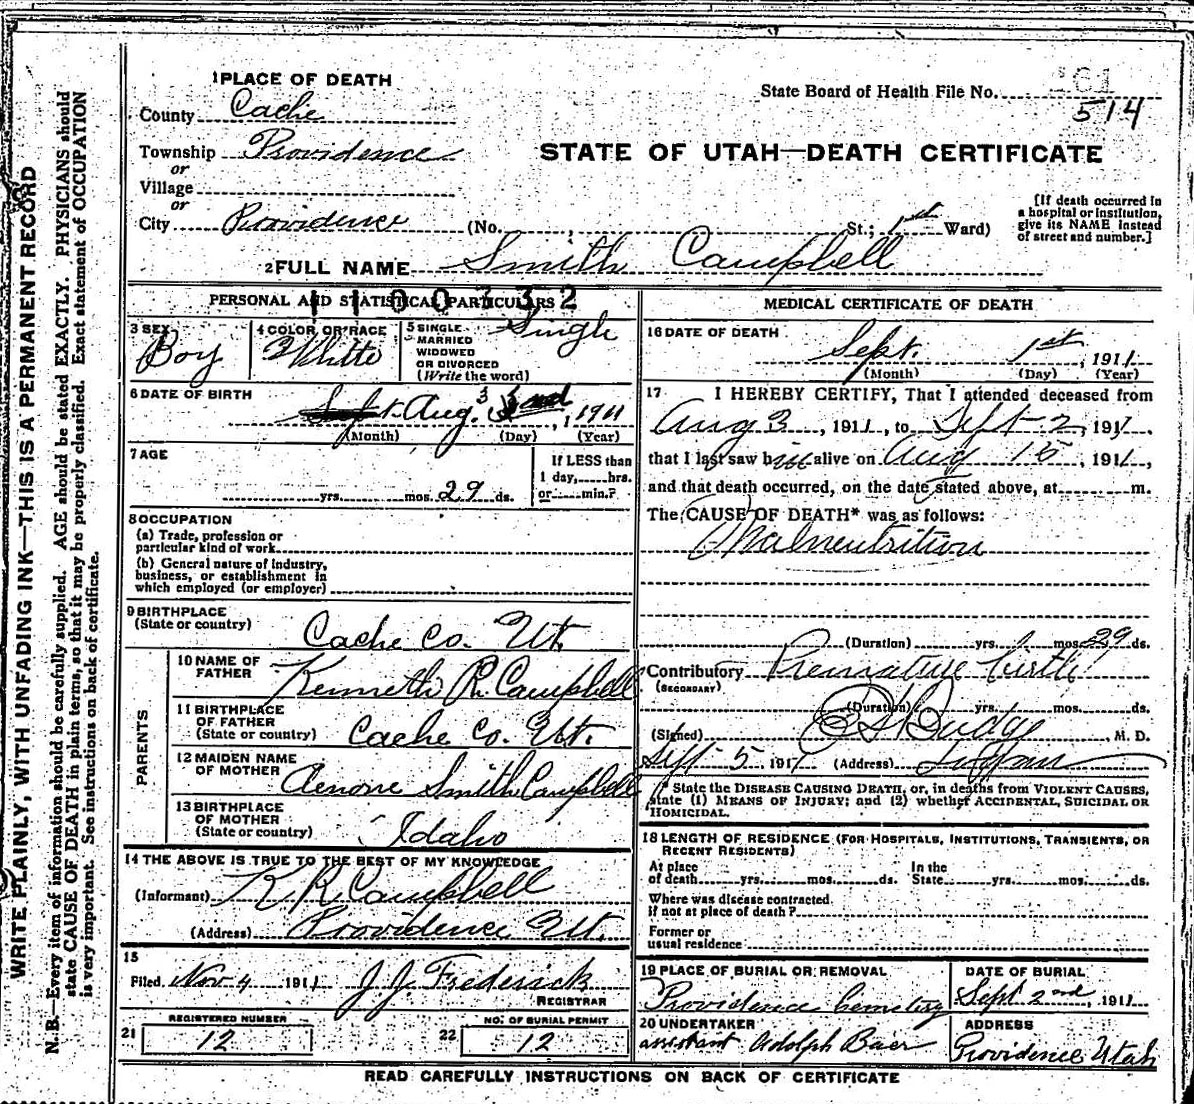 1 PLACE OF DEATH
County Cache
Township Providence
or
Village
or
City Providence (No. , St.; 1st Ward)
State Board of Health File No.
514
STATE OF UTAH—DEATH CERTIFICATE
[If death occurred in
a hospital or institution,
give its NAME instead
of street and number.]
2 FULL NAME Smith Campbell
PERSONAL AND STATISTICAL PARTICULARS
3 SEX
Boy
4 COLOR OR RACE
White
5 SINGLE
MARRIED
WIDOWED
OR DIVORCED
(Write the word)
Single
6 DATE OF BIRTH
Aug. 3 , 1911
(Month) (Day) (Year)
7 AGE
yrs. mos. 29 ds.
If LESS than
1 day, hrs.
or min.?
8 OCCUPATION
(a) Trade, profession or
particular kind of work
(b) General nature of industry,
business, or establishment in
which employed (or employer)
9 BIRTHPLACE
(State or country)
Cache Co. Ut.
PARENTS
10 NAME OF
FATHER
Kenneth R. Campbell
11 BIRTHPLACE
OF FATHER
(State or country)
Cache Co. Ut.
12 MAIDEN NAME
OF MOTHER
Smith Campbell
13 BIRTHPLACE
OF MOTHER
(State or country)
Idaho
14 THE ABOVE IS TRUE TO THE BEST OF MY KNOWLEDGE
(Informant) K. R. Campbell
(Address) Providence Ut.
15
Filed Nov 4 1911 J. J. Frederick
REGISTRAR
21 REGISTERED NUMBER
12
22 NO. OF BURIAL PERMIT
12
MEDICAL CERTIFICATE OF DEATH
16 DATE OF DEATH
Sept. 1st , 1911
(Month) (Day) (Year)
17 I HEREBY CERTIFY, That I attended deceased from
Aug 3 , 1911, to Sept 2, 1911,
that I last saw him alive on Aug 15, 1911,
and that death occurred, on the date stated above, at m.
The CAUSE OF DEATH* was as follows:
Malneutrition
(Duration) yrs. mos. 29 ds.
Contributory Premature birth
(SECONDARY)
(Duration) yrs. mos. ds.
(Signed) Budge , M. D.
Sept 5 1911 (Address) Logan
* State the DISEASE CAUSING DEATH, or, in deaths from VIOLENT CAUSES,
state (1) MEANS OF INJURY; and (2) whether ACCIDENTAL, SUICIDAL OR
HOMICIDAL.
18 LENGTH OF RESIDENCE (FOR HOSPITALS, INSTITUTIONS, TRANSIENTS, OR
RECENT RESIDENTS)
At place
of death yrs. mos. ds.
In the
State yrs. mos. ds.
Where was disease contracted
if not at place of death?
Former or
usual residence
19 PLACE OF BURIAL OR REMOVAL
Providence Cemetery
DATE OF BURIAL
Sept. 2nd, 1911
20 UNDERTAKER
assistant Adolph Baer
ADDRESS
Providence Utah
READ CAREFULLY INSTRUCTIONS ON BACK OF CERTIFICATE
WRITE PLAINLY, WITH UNFADING INK—THIS IS A PERMANENT RECORD
N. B.—Every item of information should be carefully supplied. AGE should be stated EXACTLY. PHYSICIANS should
state CAUSE OF DEATH in plain terms, so that it may be properly classified. Exact statement of OCCUPATION
is very important. See instructions on back of certificate.